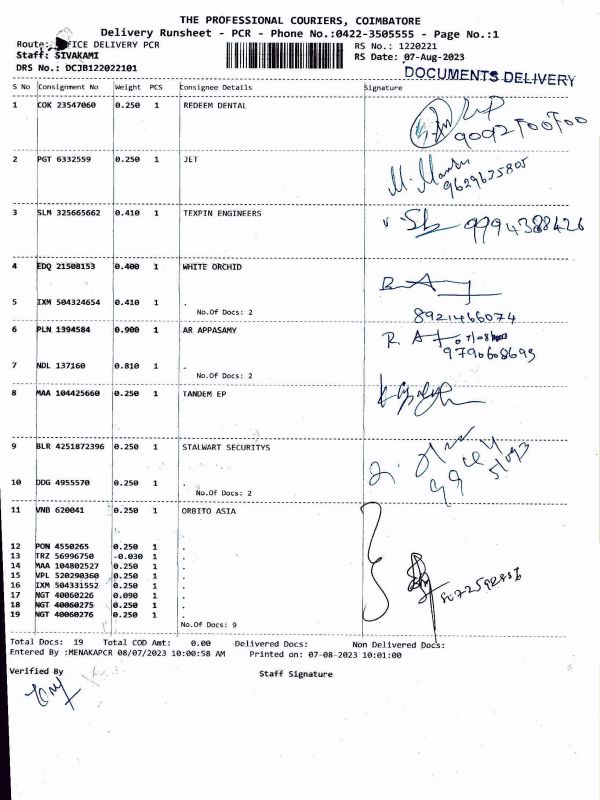 THE PROFESSIONAL COURIERS, COIMBATORE
Delivery Runsheet - PCR - Phone No.:0422-3505555 - Page No.:1
Route: FICE DELIVERY PCR RS No.: 1220221
Staff: SIVAKAMI RS Date: 07-Aug-2023
DRS No.: DCJB122022101 DOCUMENTS DELIVERY
S No Consignment No Weight PCS Consignee Details Signature
1 COK 23547060 0.250 1 REDEEM DENTAL
2 PGT 6332559 0.250 1 JET
9629635805
3 SLM 325665662 0.410 1 TEXPIN ENGINEERS
9994388426
4 EDQ 21508153 0.400 1 WHITE ORCHID
5 IXM 504324654 0.410 1 .
No.Of Docs: 2
8921466074
6 PLN 1394584 0.900 1 AR APPASAMY
9790608693
7 NDL 137160 0.810 1 .
No.Of Docs: 2
8 MAA 104425660 0.250 1 TANDEM EP
9 BLR 4251872396 0.250 1 STALWART SECURITYS
10 DDG 4955570 0.250 1 .
No.Of Docs: 2
11 VNB 620041 0.250 1 ORBITO ASIA
12 PON 4550265 0.250 1 .
13 TRZ 56996750 -0.030 1 .
14 MAA 104802527 0.250 1 .
15 VPL 520290360 0.250 1 .
16 IXM 504331552 0.250 1 .
17 NGT 40060226 0.090 1 .
18 NGT 40060275 0.250 1 .
19 NGT 40060276 0.250 1 .
No.Of Docs: 9
Total Docs: 19 Total COD Amt: 0.00 Delivered Docs: Non Delivered Docs:
Entered By :MENAKAPCR 08/07/2023 10:00:58 AM Printed on: 07-08-2023 10:01:00
Verified By Staff Signature